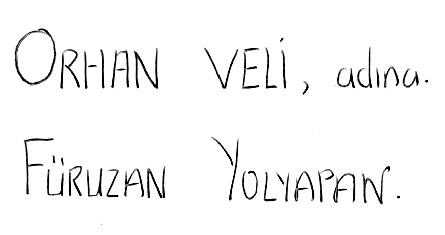 ORHAN VELİ, adına.
FÜRUZAN YOLYAPAN.